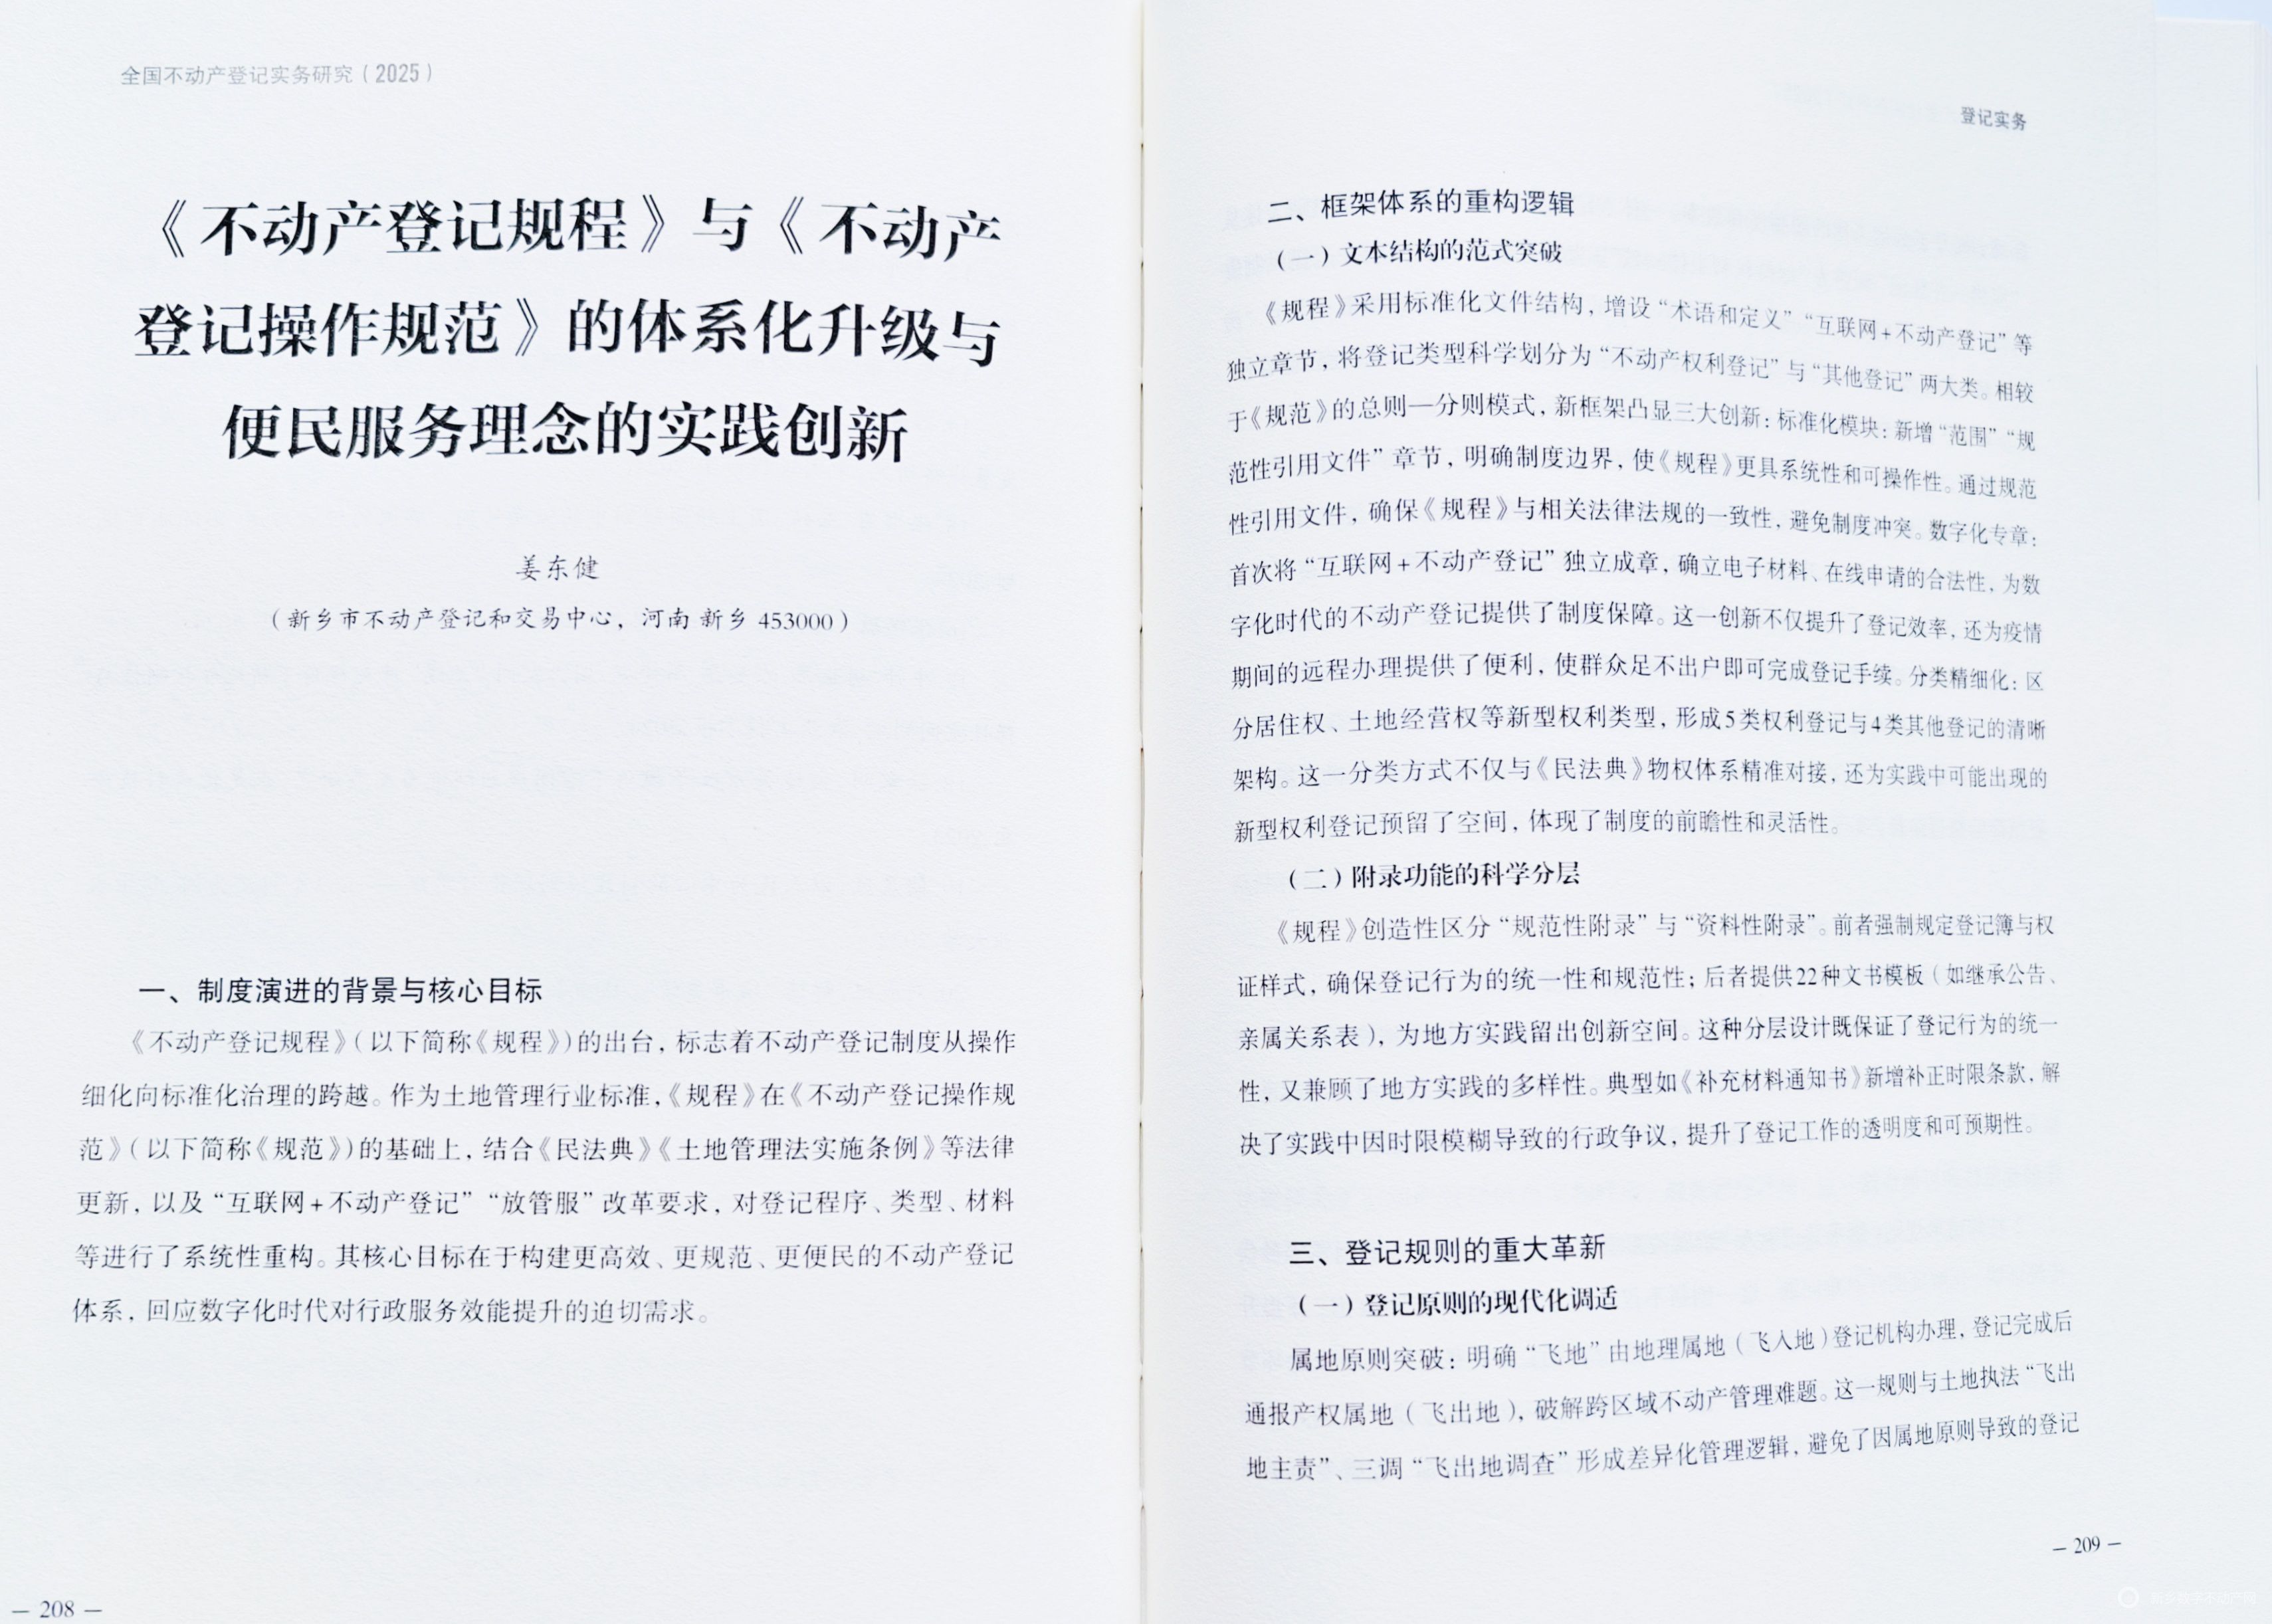 全国不动产登记实务研究（2025）
《不动产登记规程》与《不动产
登记操作规范》的体系化升级与
便民服务理念的实践创新
姜东健
（新乡市不动产登记和交易中心，河南 新乡 453000）
一、制度演进的背景与核心目标
《不动产登记规程》（以下简称《规程》）的出台，标志着不动产登记制度从操作
细化向标准化治理的跨越。作为土地管理行业标准，《规程》在《不动产登记操作规
范》（以下简称《规范》）的基础上，结合《民法典》《土地管理法实施条例》等法律
更新，以及“互联网+不动产登记”“放管服”改革要求，对登记程序、类型、材料
等进行了系统性重构。其核心目标在于构建更高效、更规范、更便民的不动产登记
体系，回应数字化时代对行政服务效能提升的迫切需求。
— 208 —
登记实务
二、框架体系的重构逻辑
（一）文本结构的范式突破
《规程》采用标准化文件结构，增设“术语和定义”“互联网+不动产登记”等
独立章节，将登记类型科学划分为“不动产权利登记”与“其他登记”两大类。相较
于《规范》的总则—分则模式，新框架凸显三大创新：标准化模块：新增“范围”“规
范性引用文件”章节，明确制度边界，使《规程》更具系统性和可操作性。通过规范
性引用文件，确保《规程》与相关法律法规的一致性，避免制度冲突。数字化专章：
首次将“互联网+不动产登记”独立成章，确立电子材料、在线申请的合法性，为数
字化时代的不动产登记提供了制度保障。这一创新不仅提升了登记效率，还为疫情
期间的远程办理提供了便利，使群众足不出户即可完成登记手续。分类精细化：区
分居住权、土地经营权等新型权利类型，形成5类权利登记与4类其他登记的清晰
架构。这一分类方式不仅与《民法典》物权体系精准对接，还为实践中可能出现的
新型权利登记预留了空间，体现了制度的前瞻性和灵活性。
（二）附录功能的科学分层
《规程》创造性区分“规范性附录”与“资料性附录”。前者强制规定登记簿与权
证样式，确保登记行为的统一性和规范性；后者提供22种文书模板（如继承公告、
亲属关系表），为地方实践留出创新空间。这种分层设计既保证了登记行为的统一
性，又兼顾了地方实践的多样性。典型如《补充材料通知书》新增补正时限条款，解
决了实践中因时限模糊导致的行政争议，提升了登记工作的透明度和可预期性。
三、登记规则的重大革新
（一）登记原则的现代化调适
属地原则突破：明确“飞地”由地理属地（飞入地）登记机构办理，登记完成后
通报产权属地（飞出地），破解跨区域不动产管理难题。这一规则与土地执法“飞出
地主责”、三调“飞出地调查”形成差异化管理逻辑，避免了因属地原则导致的登记
— 209 —